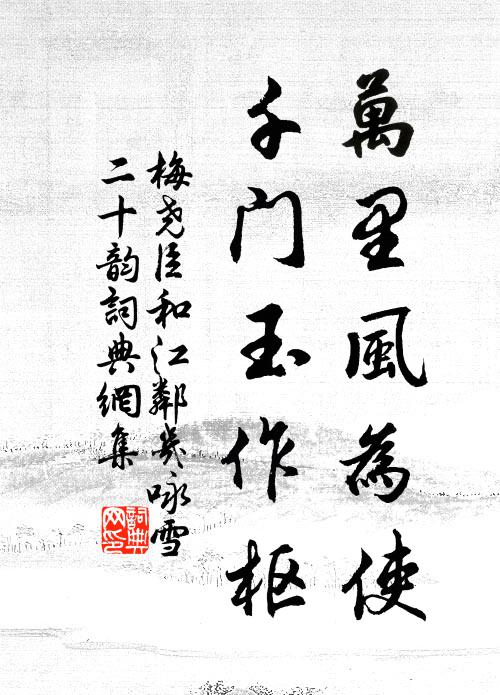 萬里風為使
千门玉作枢
梅尧臣和江鄰幾咏雪
二十韵詞典網集
詞典
网印